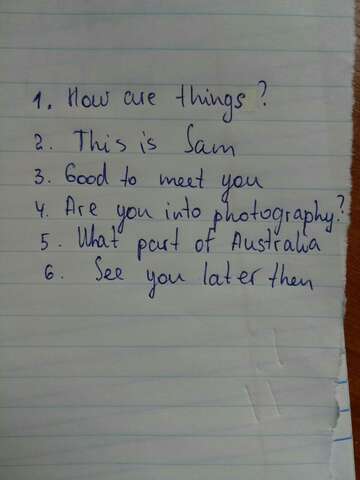 1. How are things?
2. This is Sam
3. Good to meet you
4. Are you into photography?
5. What part of Australia
6. See you later then